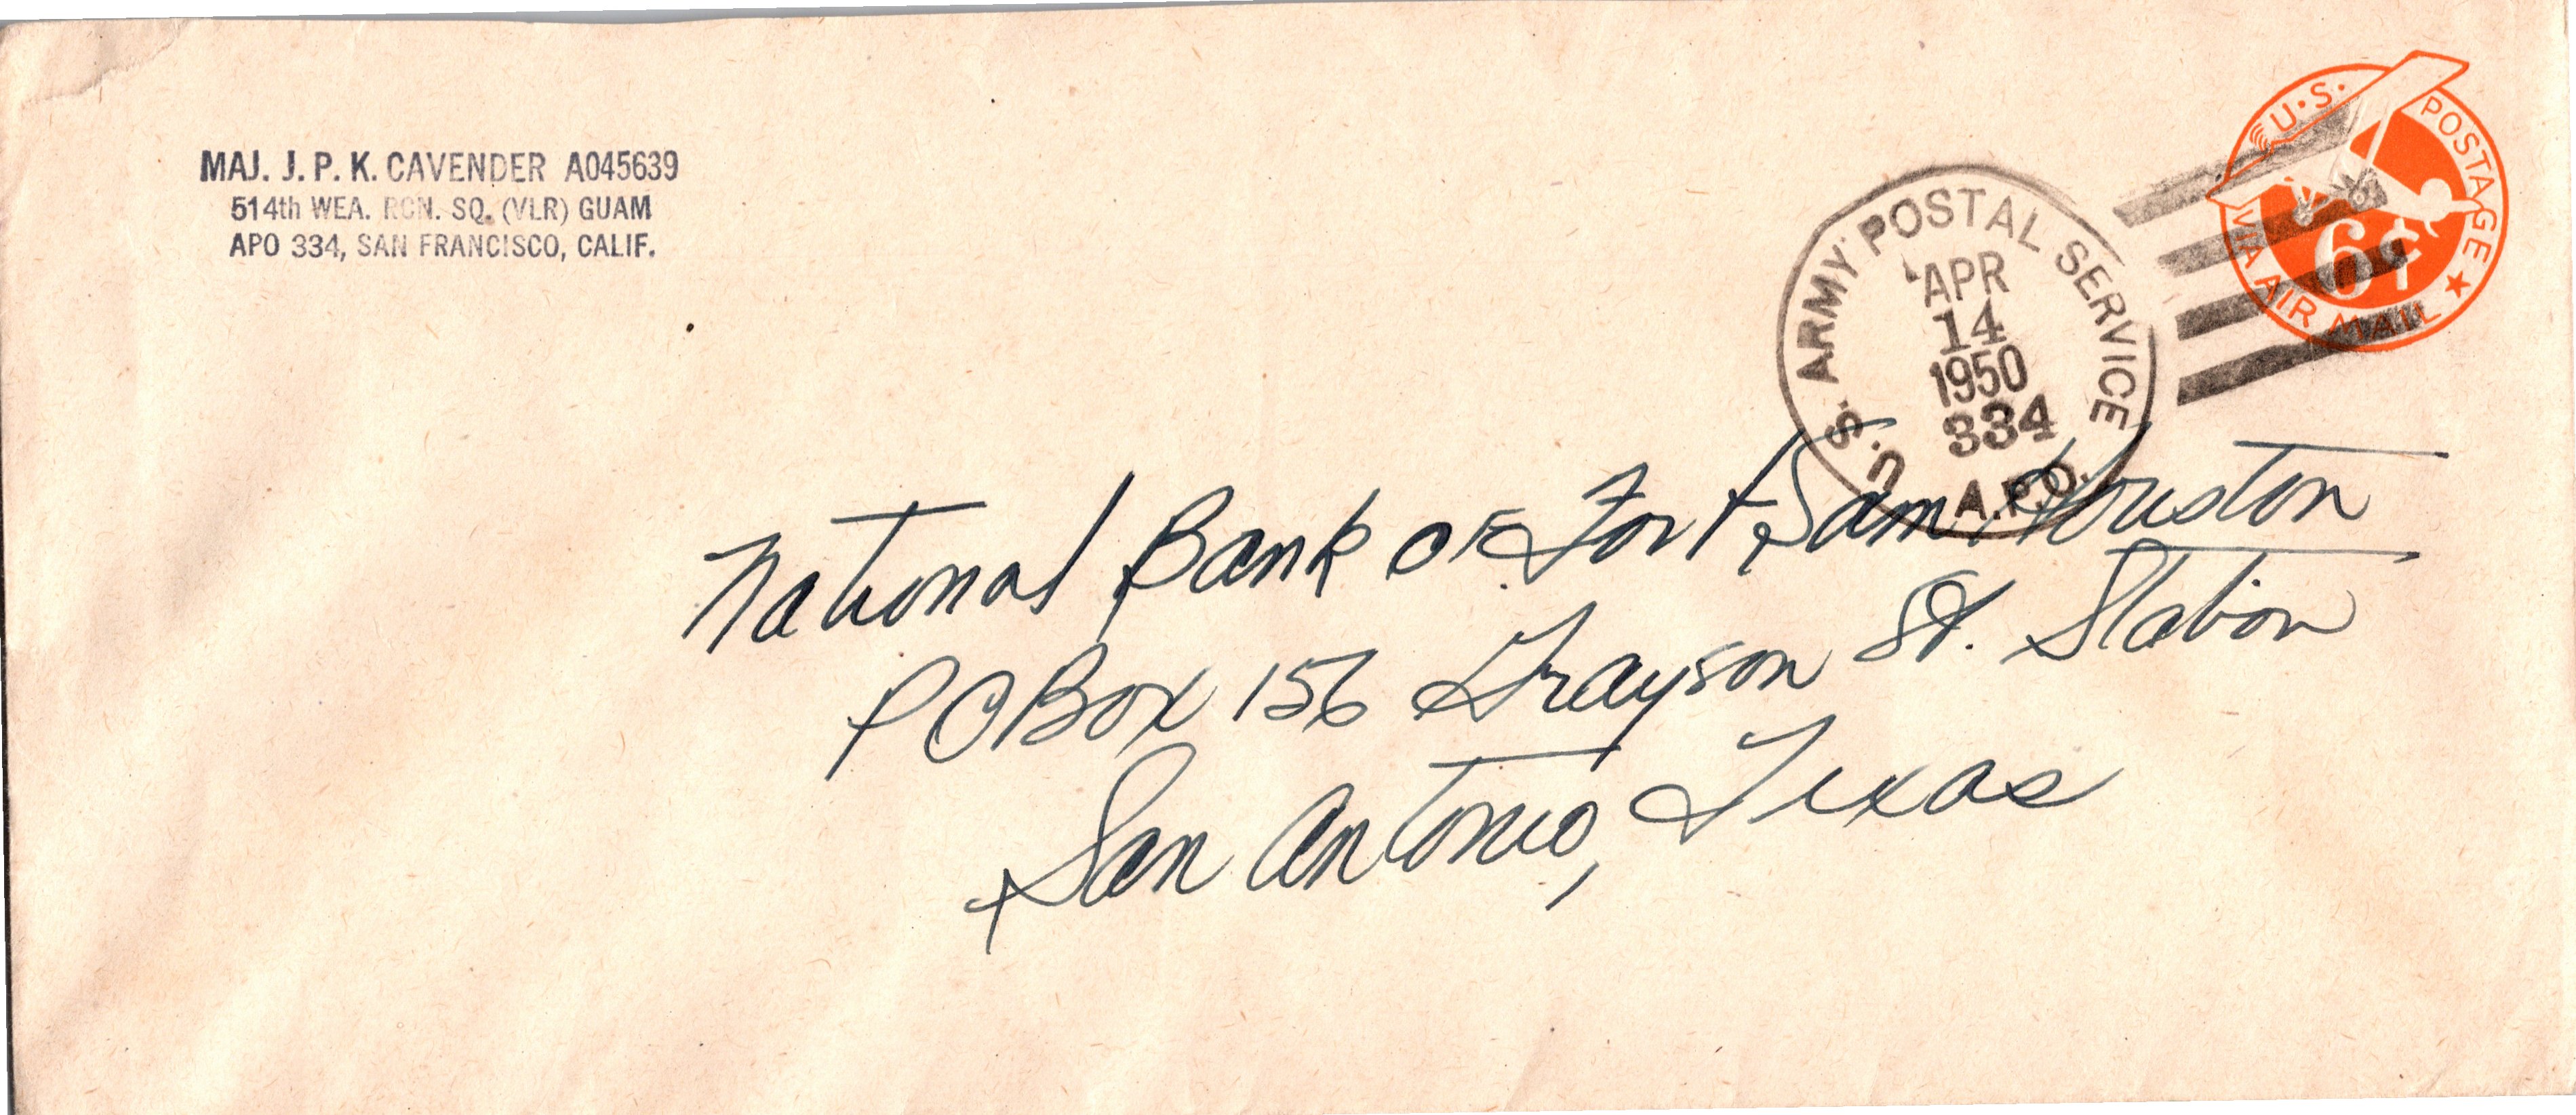 MAJ. J. P. K. CAVENDER A045639
514th WEA. RCN. SQ. (VLR) GUAM
APO 334, SAN FRANCISCO, CALIF.
U.S. POSTAGE
VIA AIR MAIL
6¢
U. S. ARMY POSTAL SERVICE
APR
14
1950
334
A.P.O.
National Bank of Fort Sam Houston
P O Box 156 Grayson St. Station
San Antonio, Texas